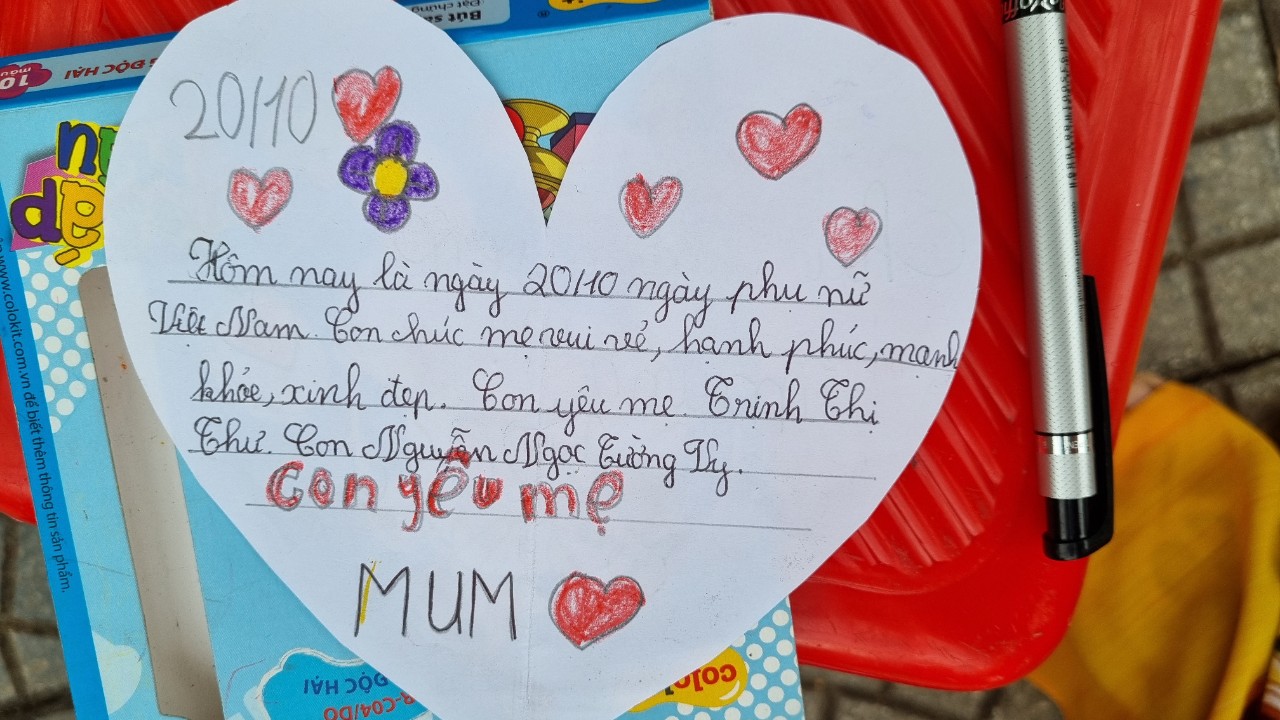 20/10
Hôm nay là ngày 20/10 ngày phụ nữ
Việt Nam. Con chúc mẹ vui vẻ, hạnh phúc, mạnh
khỏe, xinh đẹp. Con yêu mẹ. Trịnh Thị
Thư. Con Nguyễn Ngọc Tường Vy.
Con yêu mẹ
MUM
Bút sá
Đặt chúng
ĐỘC HẠI
10
màu
dẹ
www.colokit.com.vn để biết thêm thông tin sản phẩm.
ĐỘC HẠI
-C04/DO
colo